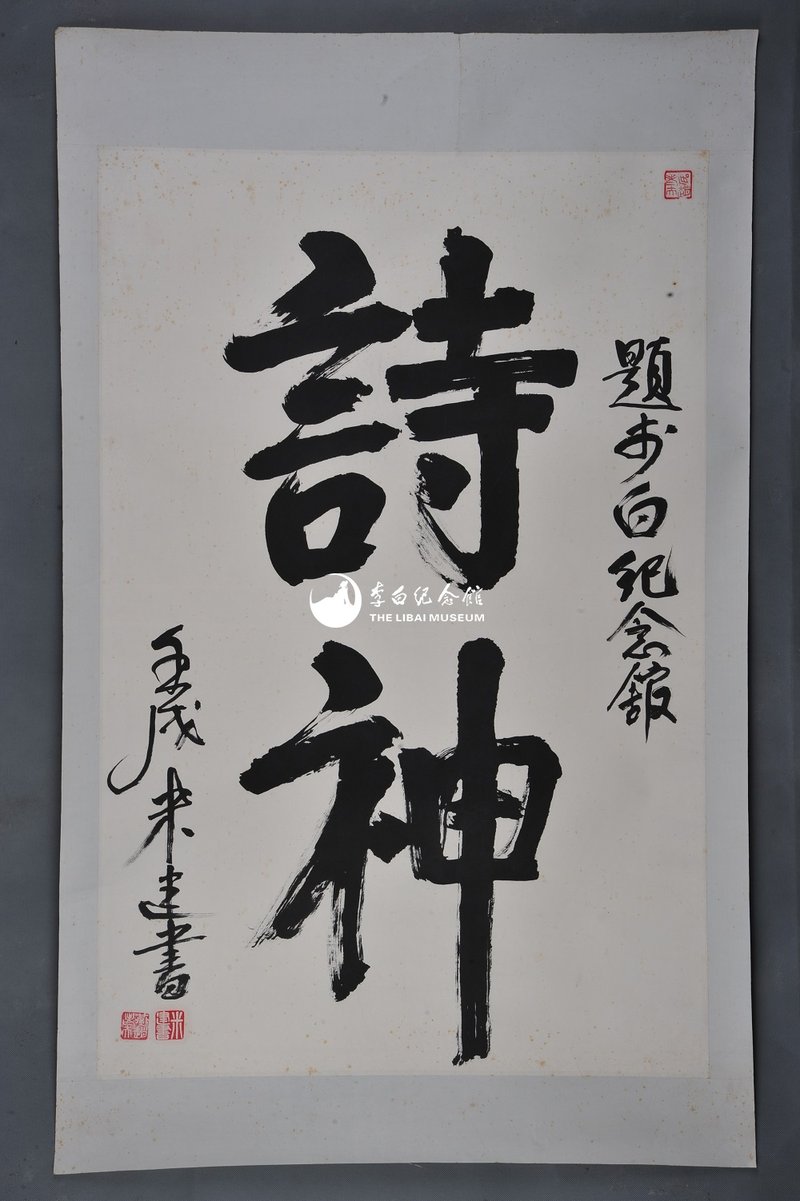 題李白纪念館
詩神
壬戌米建書
李白纪念館
THE LIBAI MUSEUM